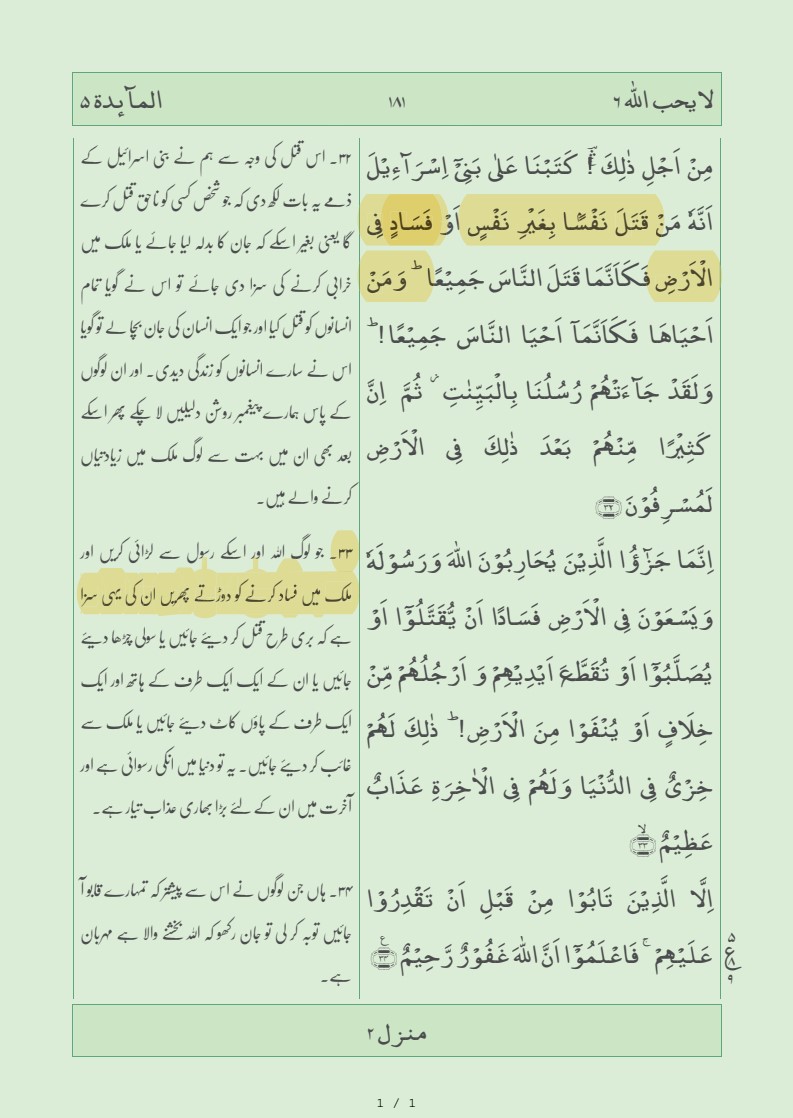 لا یحب اللہ ۶
۱۸۱
المآىِٕدة ۵
مِنْ اَجْلِ ذٰلِكَ ۛۚؔ كَتَبْنَا عَلٰى بَنِیْۤ اِسْرَآءِیْلَ
اَنَّهٗ مَنْ قَتَلَ نَفْسًۢا بِغَیْرِ نَفْسٍ اَوْ فَسَادٍ فِی
الْاَرْضِ فَكَاَنَّمَا قَتَلَ النَّاسَ جَمِیْعًا ؕ وَ مَنْ
اَحْیَاهَا فَكَاَنَّمَاۤ اَحْیَا النَّاسَ جَمِیْعًا! ؕ
وَ لَقَدْ جَآءَتْهُمْ رُسُلُنَا بِالْبَیِّنٰتِ ؗ ثُمَّ اِنَّ
كَثِیْرًا مِّنْهُمْ بَعْدَ ذٰلِكَ فِی الْاَرْضِ
لَمُسْرِفُوْنَ ۳۲
اِنَّمَا جَزٰٓؤُا الَّذِیْنَ یُحَارِبُوْنَ اللّٰهَ وَ رَسُوْلَهٗ
وَ یَسْعَوْنَ فِی الْاَرْضِ فَسَادًا اَنْ یُّقَتَّلُوْۤا اَوْ
یُصَلَّبُوْۤا اَوْ تُقَطَّعَ اَیْدِیْهِمْ وَ اَرْجُلُهُمْ مِّنْ
خِلَافٍ اَوْ یُنْفَوْا مِنَ الْاَرْضِ! ؕ ذٰلِكَ لَهُمْ
خِزْیٌ فِی الدُّنْیَا وَ لَهُمْ فِی الْاٰخِرَةِ عَذَابٌ
عَظِیْمٌ ۙ ۳۳
اِلَّا الَّذِیْنَ تَابُوْا مِنْ قَبْلِ اَنْ تَقْدِرُوْا
عَلَیْهِمْ ۚ فَاعْلَمُوْۤا اَنَّ اللّٰهَ غَفُوْرٌ رَّحِیْمٌ
۵
ع
۸
۹
۳۲۔ اس قتل کی وجہ سے ہم نے بنی اسرائیل کے
ذمے یہ بات لکھ دی کہ جو شخص کسی کو ناحق قتل کرے
گا یعنی بغیر اسکے کہ جان کا بدلہ لیا جائے یا ملک میں
خرابی کرنے کی سزا دی جائے تو اس نے گویا تمام
انسانوں کو قتل کیا اور جو ایک انسان کی جان بچا لے تو گویا
اس نے سارے انسانوں کو زندگی دیدی۔ اور ان لوگوں
کے پاس ہمارے پیغمبر روشن دلیلیں لا چکے پھر اسکے
بعد بھی ان میں بہت سے لوگ ملک میں زیادتیاں
کرنے والے ہیں۔
۳۳۔ جو لوگ اللہ اور اسکے رسول سے لڑائی کریں اور
ملک میں فساد کرنے کو دوڑتے پھریں ان کی یہی سزا
ہے کہ بری طرح قتل کر دیئے جائیں یا سولی چڑھا دیئے
جائیں یا ان کے ایک ایک طرف کے ہاتھ اور ایک
ایک طرف کے پاؤں کاٹ دیئے جائیں یا ملک سے
غائب کر دیئے جائیں۔ یہ تو دنیا میں انکی رسوائی ہے اور
آخرت میں ان کے لئے بڑا بھاری عذاب تیار ہے۔
۳۴۔ ہاں جن لوگوں نے اس سے پیشتر کہ تمہارے قابو آ
جائیں توبہ کر لی تو جان رکھو کہ اللہ بخشنے والا ہے مہربان
ہے۔
منزل ۲
1 / 1